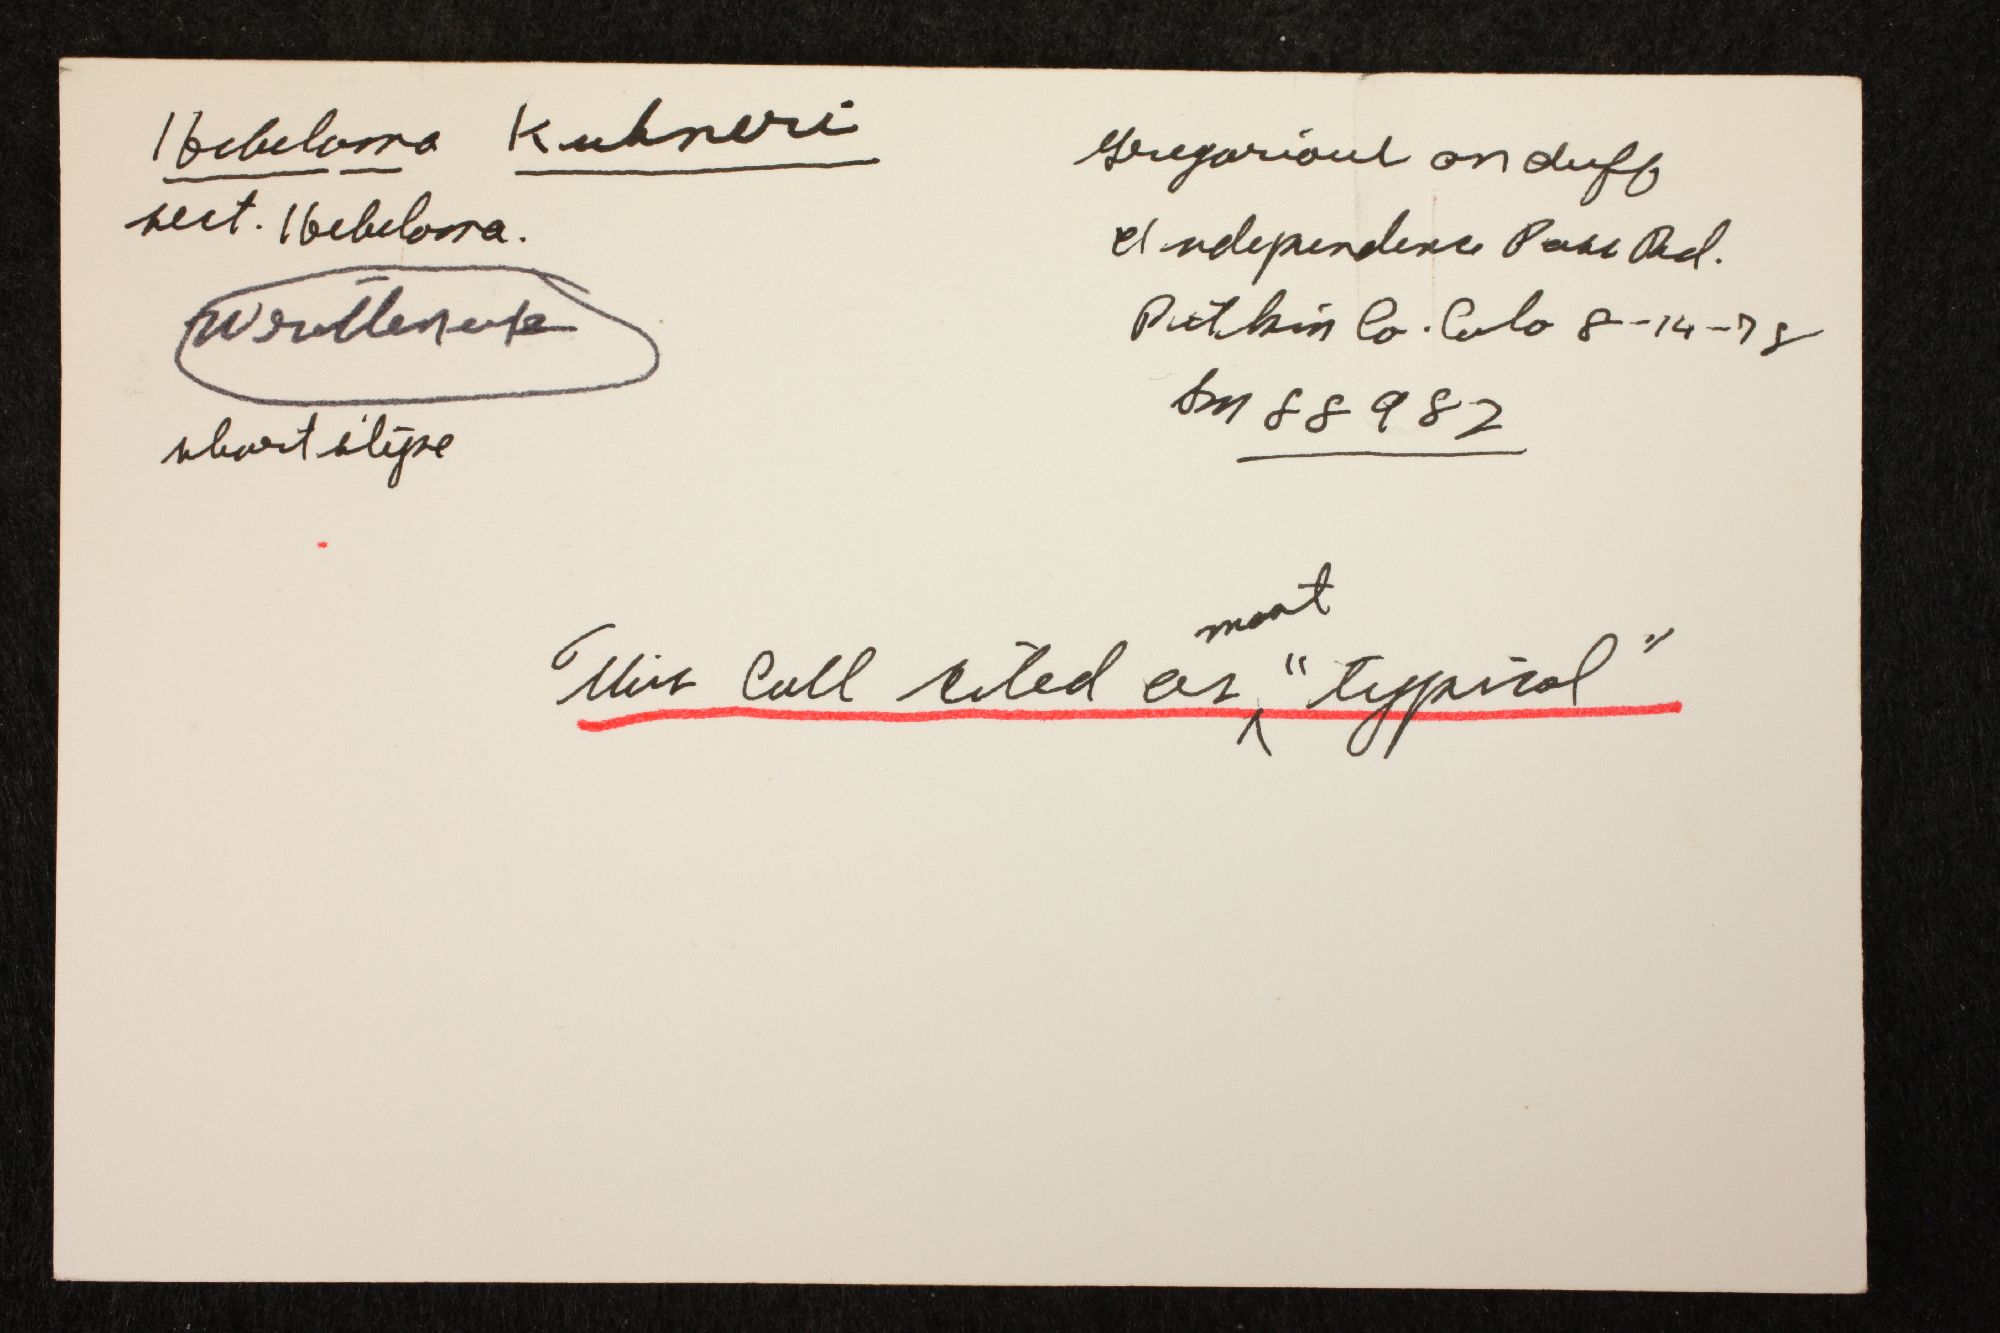 Hebeloma Kuhneri
sect. Hebeloma.
Written up
short stipe
Gregarious on duff
Independence Pass Rd.
Pitkin Co. Colo 8-14-78
Sm 88982
most
This Coll cited as ^ "typical"